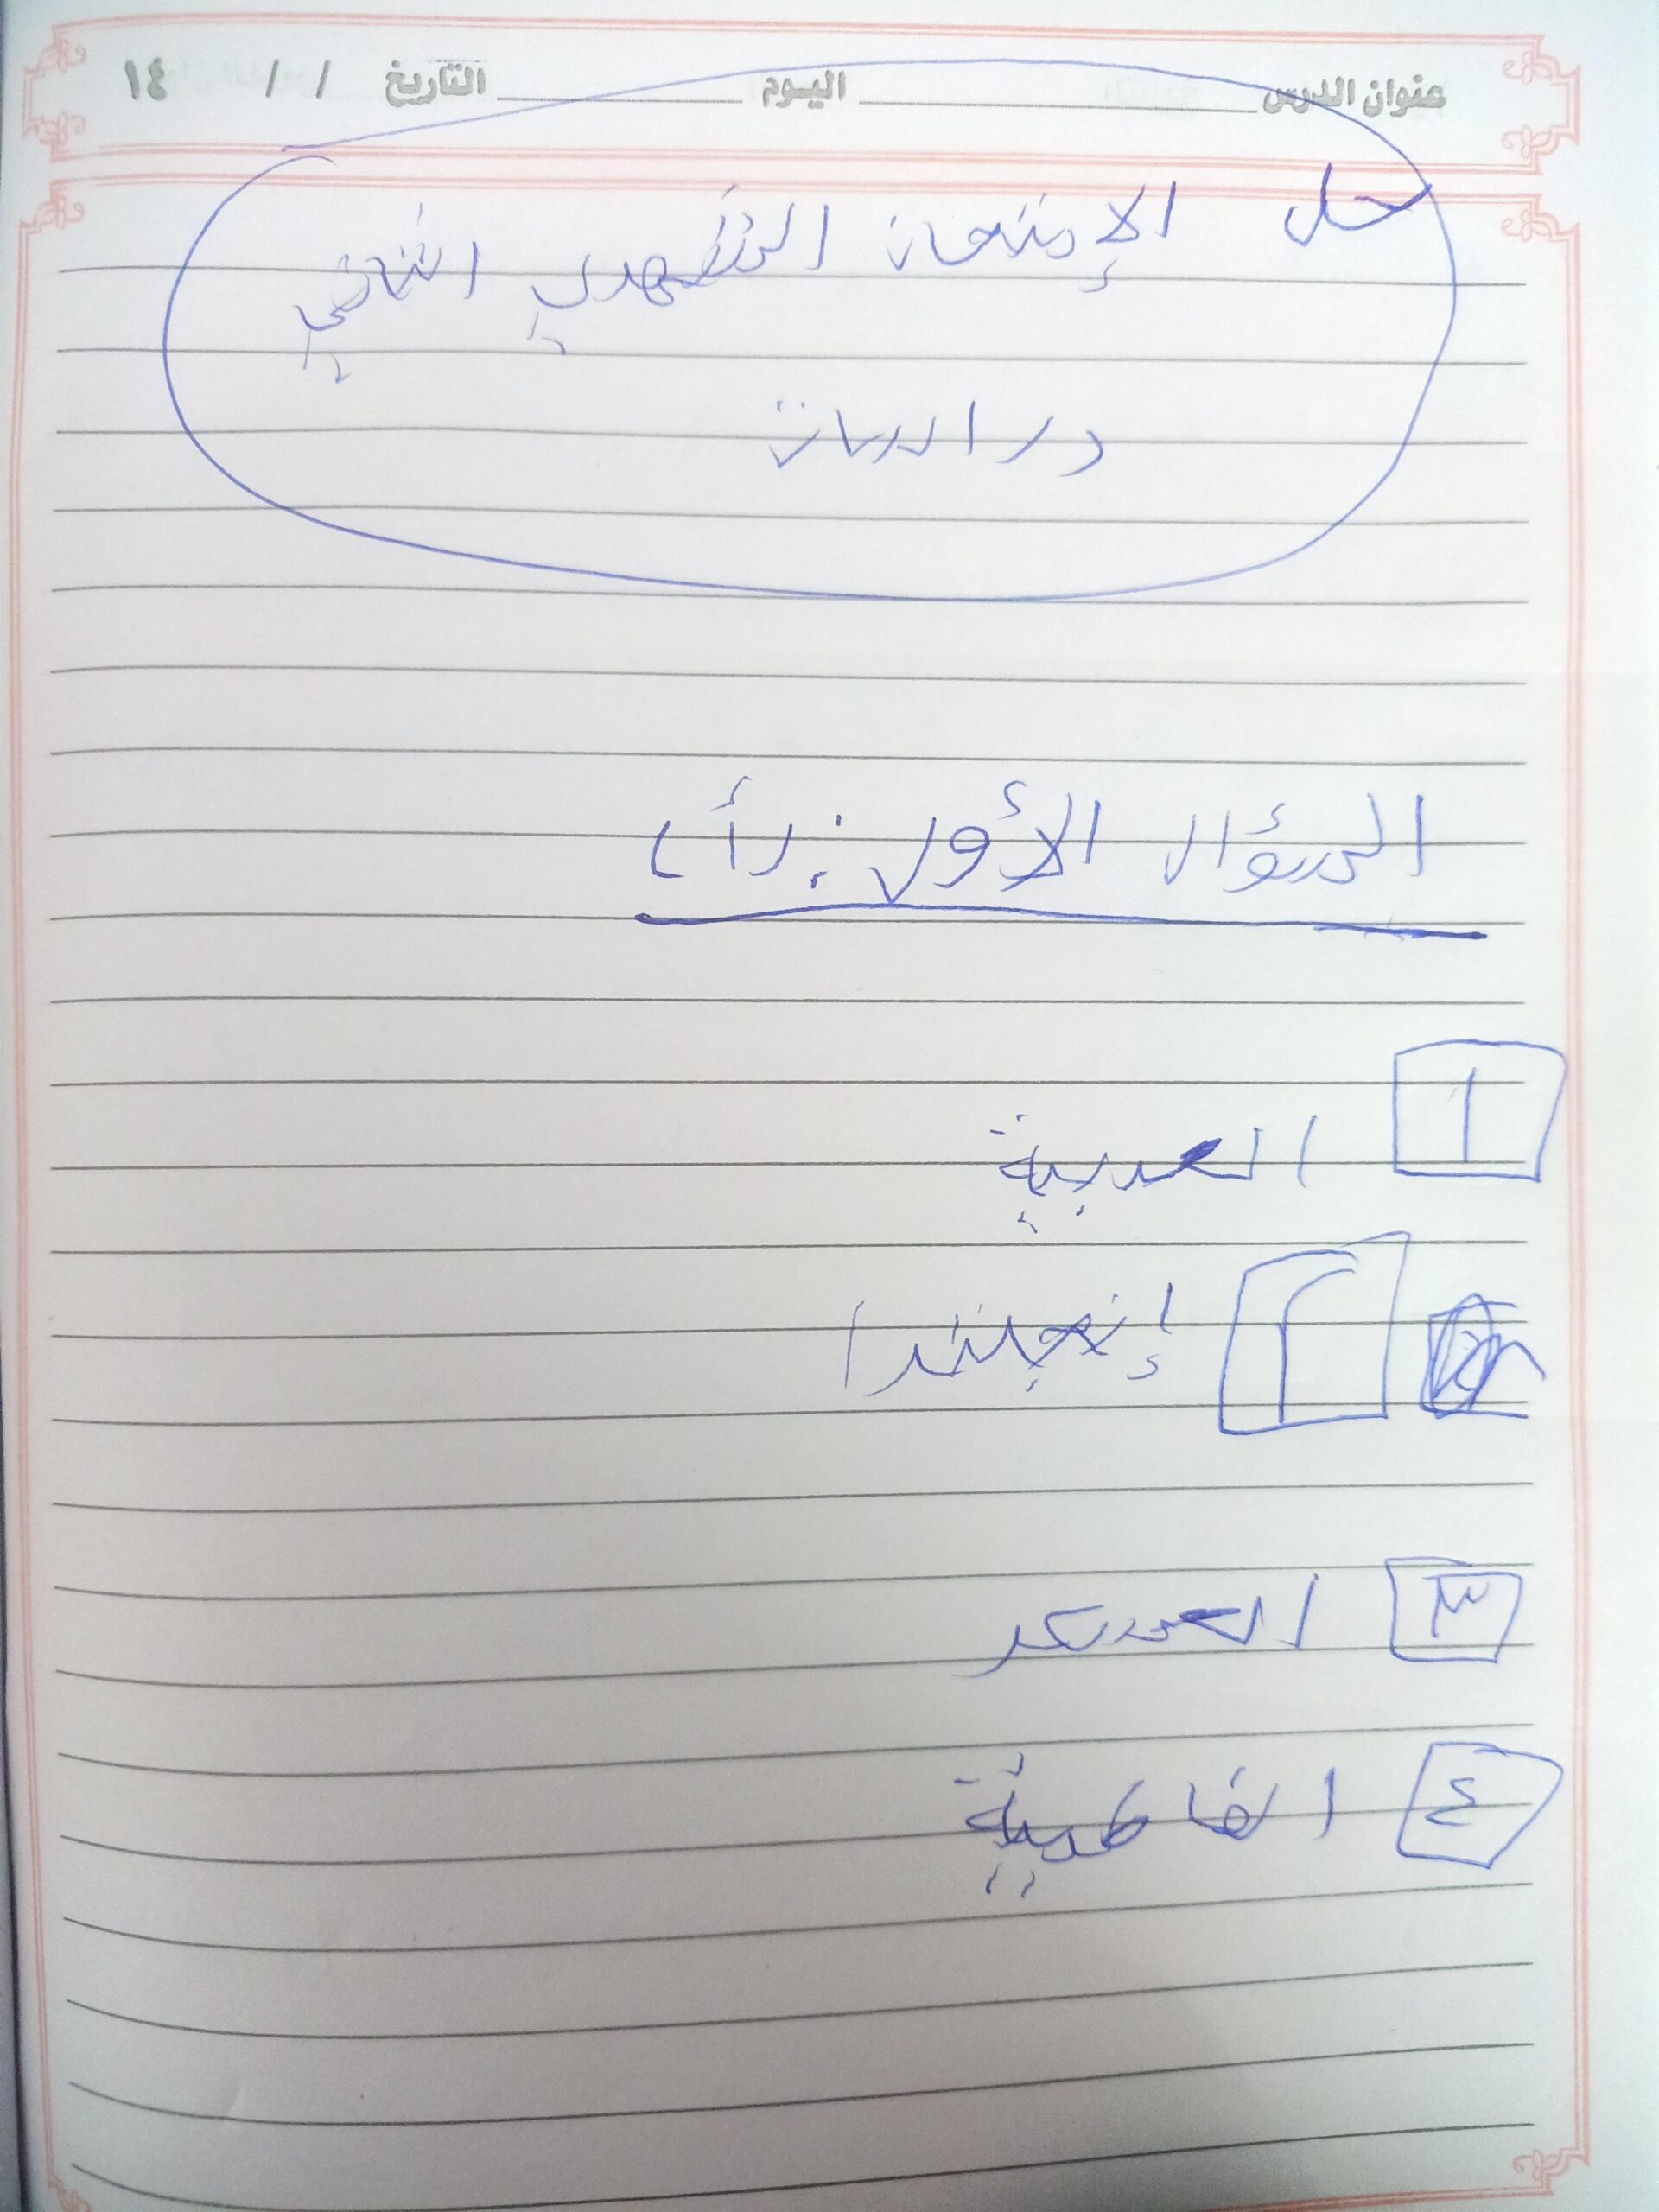 عنوان الدرس اليوم التاريخ / / ١٤
حل الإمتحان الشهري الثاني
دراسات
السؤال الأول: أ
١ العربية
٢ إنجلترا
٣ العسكر
٤ الفاطمية